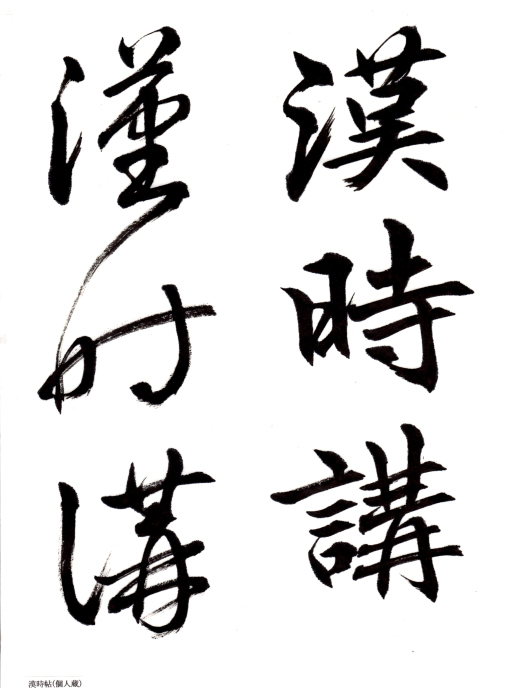 漢時講
漢時講
漢時帖(個人蔵)